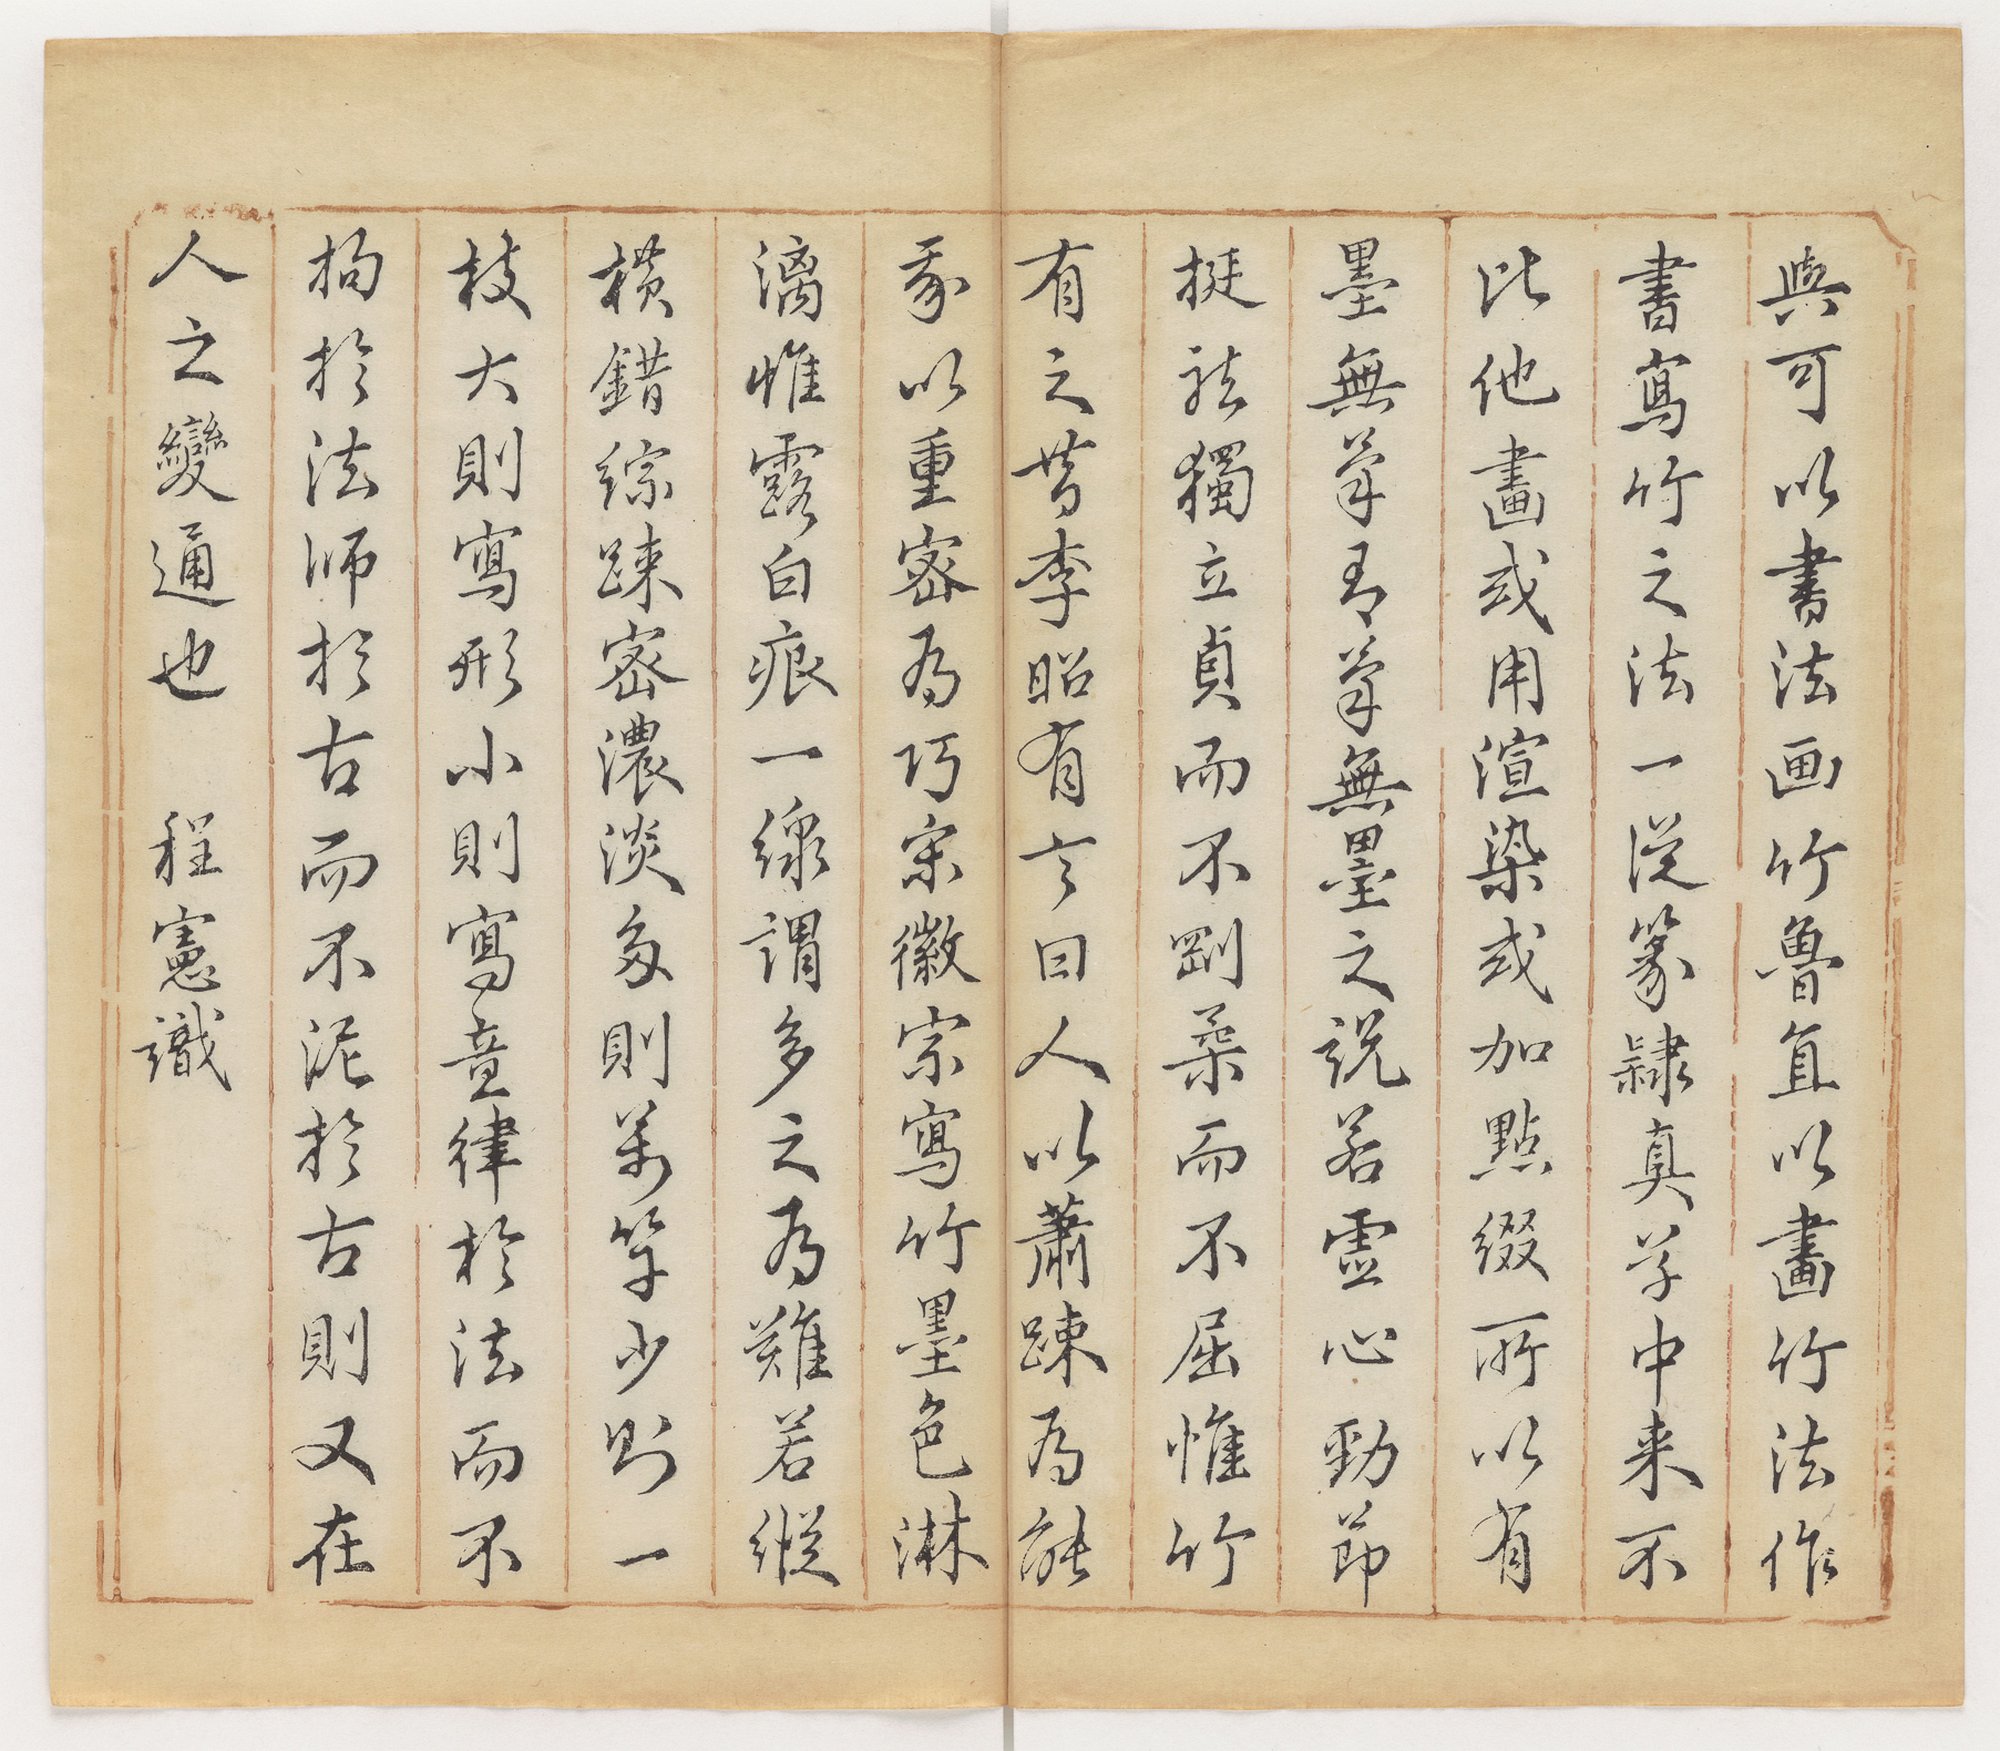 與可以書法画竹魯直以畫竹法作
書寫竹之法一從篆隸真草中来不
比他畫或用渲染或加點綴所以有
墨無筆有筆無墨之説若虛心勁節
挺然獨立貞而不剛柔而不屈惟竹
有之昔李昭有言曰人以蕭踈為能
我以重密為巧宋徽宗寫竹墨色淋
漓惟露白痕一線謂多之為難若縱
橫錯綜踈密濃淡多則萬竿少則一
枝大則寫形小則寫意律於法而不
拘於法師於古而不泥於古則又在
人之變通也 程憲識